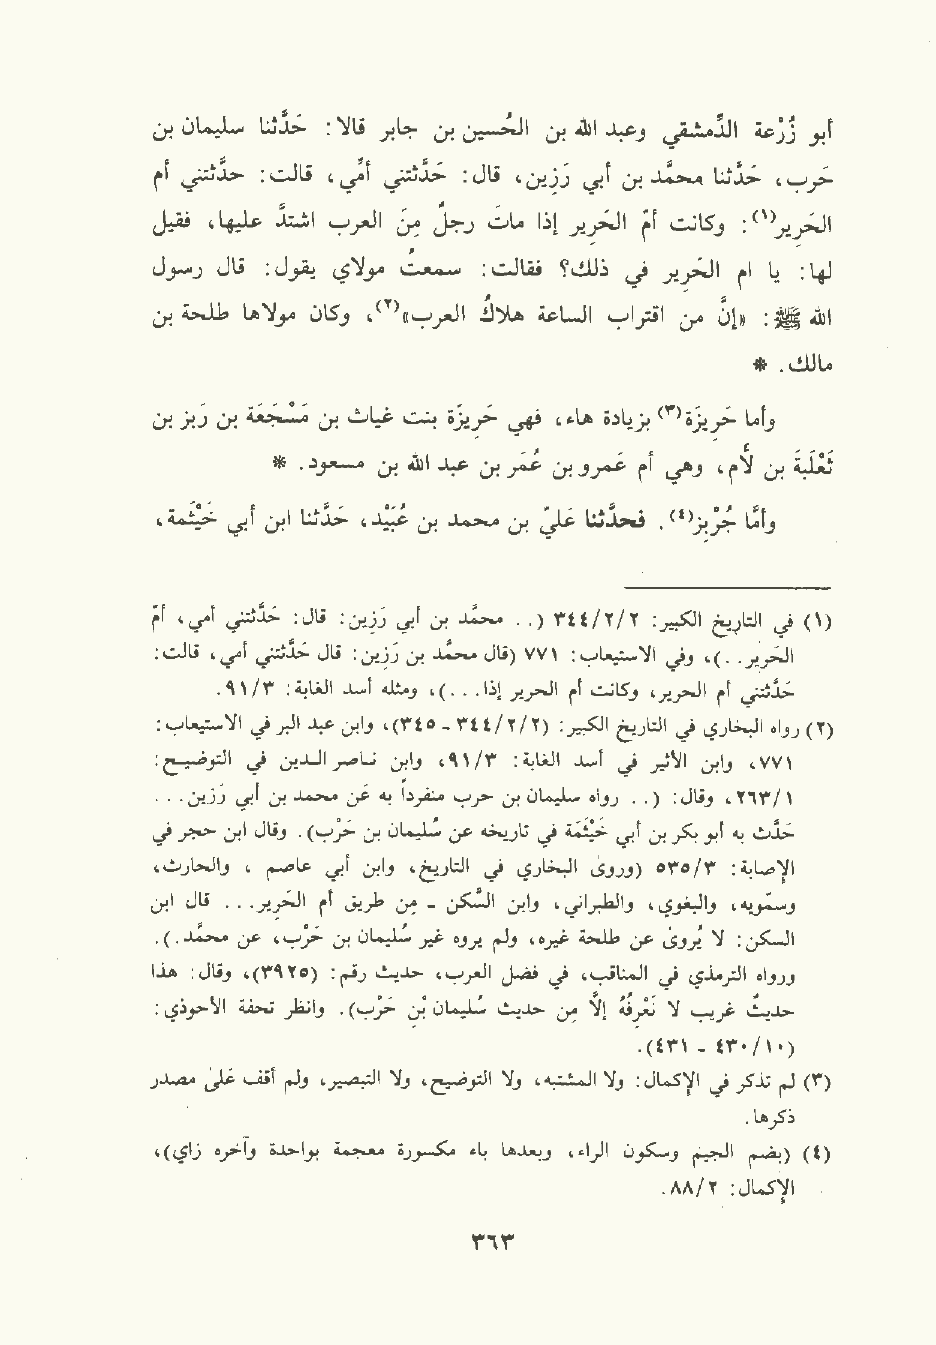 أبو زُرْعة الدِّمشقي وعبد الله بن الحُسين بن جابر قالا: حَدَّثنا سليمان بن
حَرب، حَدَّثنا محمَّد بن أبي رَزِين، قال: حَدَّثتني أمِّي، قالت: حدَّثتني أم
الحَرِير(١): وكانت أمّ الحَرِير إذا ماتَ رجلٌ مِنَ العرب اشتدَّ عليها، فقيل
لها: يا أم الحَرِير في ذلك؟ فقالت: سمعتُ مولاي يقول: قال رسول
الله ﷺ: «إنَّ من اقتراب الساعة هلاكُ العرب»(٢)، وكان مولاها طلحة بن
مالك. *
وأما حَرِيزَة(٣) بزيادة هاء، فهي حَرِيزَة بنت غياث بن مَسْجَعَة بن رَبز بن
ثَعْلَبَةَ بن لأم، وهي أم عَمرو بن عُمَر بن عبد الله بن مسعود. *
وأمَّا جُرْبِز(٤). فحدَّثنا عَليّ بن محمد بن عُبَيْد، حَدَّثنا ابن أبي خَيْثمة،
(١) في التاريخ الكبير: ٣٤٤/٢/٢ (.. محمَّد بن أبي رَزِين: قال: حَدَّثتني أمي، أمّ
الحَرِير..)، وفي الاستيعاب: ٧٧١ (قال محمَّد بن رَزِين: قال حَدَّثتني أمي، قالت:
حَدَّثتني أم الحرير، وكانت أم الحرير إذا...)، ومثله أسد الغابة: ٩١/٣.
(٢) رواه البخاري في التاريخ الكبير: (٣٤٤/٢/٢ - ٣٤٥)، وابن عبد البر في الاستيعاب:
٧٧١، وابن الأثير في أسد الغابة: ٩١/٣، وابن ناصر الدين في التوضيح:
٢٦٣/١، وقال: (.. رواه سليمان بن حرب منفرداً به عَن محمد بن أبي رَزِين...
حَدَّث به أبو بكر بن أبي خَيْثَمَة في تاريخه عن سُليمان بن حَرْب). وقال ابن حجر في
الإصابة: ٥٣٥/٣ (وروىَ البخاري في التاريخ، وابن أبي عاصم ، والحارث،
وسمّويه، والبغوي، والطبراني، وابن السَّكن - مِن طريق أم الحَرِير... قال ابن
السكن: لا يُروىَ عن طلحة غيره، ولم يروه غير سُليمان بن حَرْب، عن محمَّد.).
ورواه الترمذي في المناقب، في فضل العرب، حديث رقم: (٣٩٢٥)، وقال: هذا
حديثٌ غريب لا نَعْرِفُهُ إلاَّ مِن حديث سُليمان بْنِ حَرْب). وانظر تحفة الأحوذي:
(٤٣٠/١٠ - ٤٣١).
(٣) لم تذكر في الإكمال: ولا المشتبه، ولا التوضيح، ولا التبصير، ولم أقف عَلىَ مصدر
ذكرها.
(٤) (بضم الجيم وسكون الراء، وبعدها باء مكسورة معجمة بواحدة وآخره زاي)،
الإكمال: ٨٨/٢.
٣٦٣